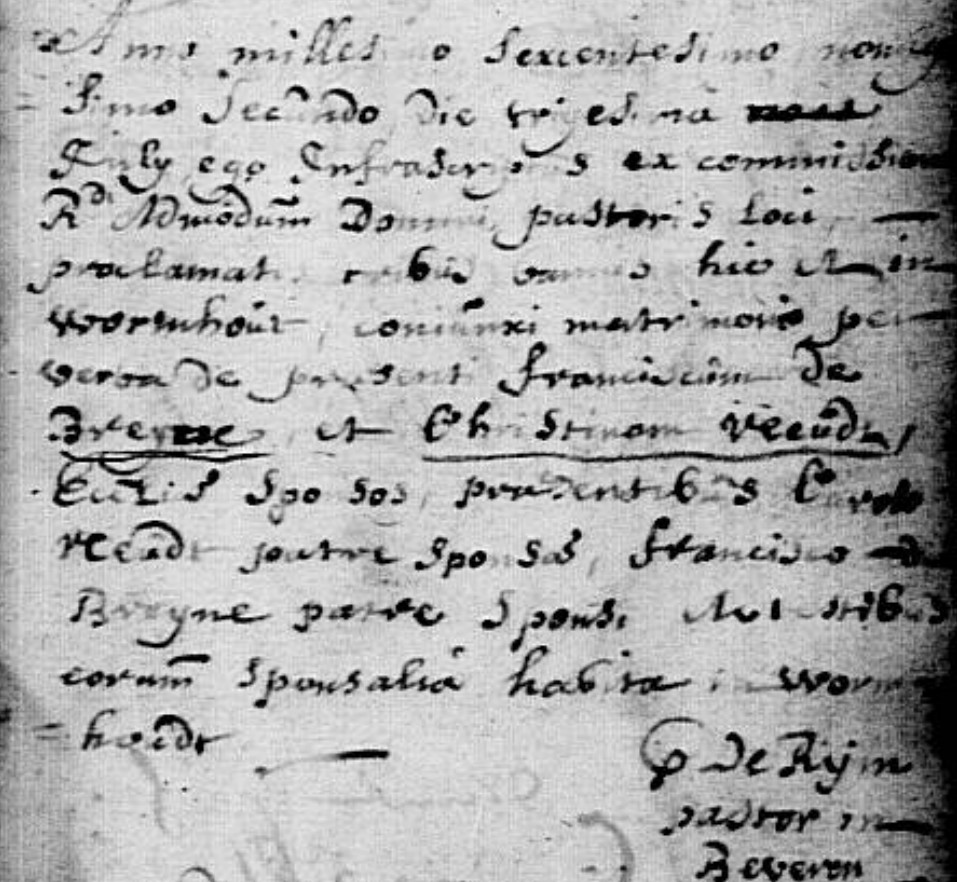 Anno millesimo sexcentesimo nonage
= simo secúndo die trigesima
Júly ego Infrascriptus ex commissione
Rdi Admodúm Domini pastoris loci, —
proclamatis tribus bannis hic et in
wormhoút, coniúnxi matrimonio per
verba de presenti franciscúm de
Breyne et Christinam Reeúdt,
sponsos, presentibus Carolo
reeúdt patre sponsæ, francisco de
Breyne patre sponsi
eorúm sponsalia habita in worm
= hoúdt —
de Rijm
pastor in
Beveren